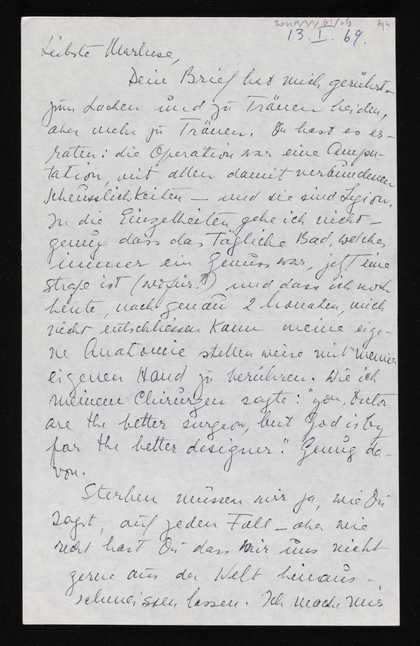 13. I. 69.
Liebste Marluse,
Dein Brief hat mich gerührt –
zum Lachen und zu Tränen beiden,
aber mehr zu Tränen. Du hast es er-
raten: die Operation war eine Ampu-
tation, mit allen damit verbundenen
Scheusslichkeiten – und sie sind Legion.
In die Einzelheiten gehe ich nicht –
genug dass das tägliche Bad, welches
immer ein Genuss war, jetzt eine
Strafe ist (wofür?) und dass ich noch
heute, nach genau 2 Monaten, mich
nicht entschliessen kann meine eige-
ne Anatomie stellenweise mit meiner
eigenen Hand zu berühren. Wie ich
meinem Chirurgen sagte: "you, Doctor
are the better surgeon, but God is by
far the better designer." Genug da-
von.
Sterben müssen wir ja, wie Du
sagst, auf jeden Fall – aber wie
recht hast Du dass wir uns nicht
gerne aus der Welt hinaus-
schmeissen lassen. Ich mache mir